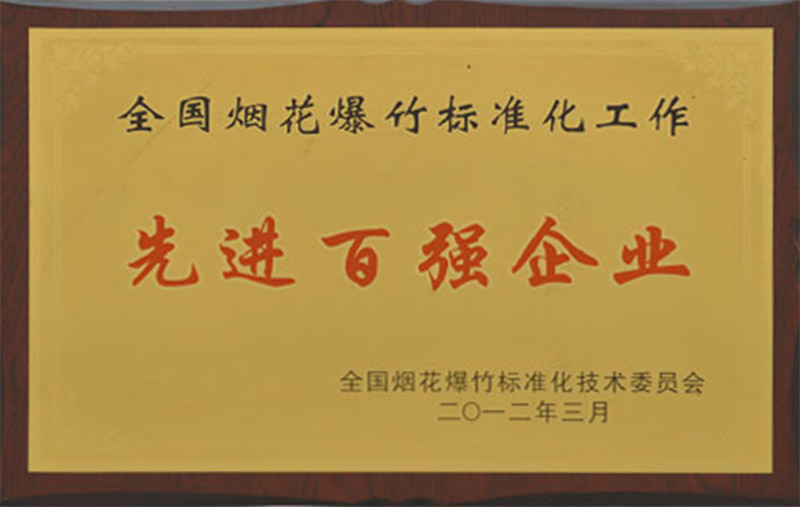 全国烟花爆竹标准化工作
先进百强企业
全国烟花爆竹标准化技术委员会
二〇一二年三月